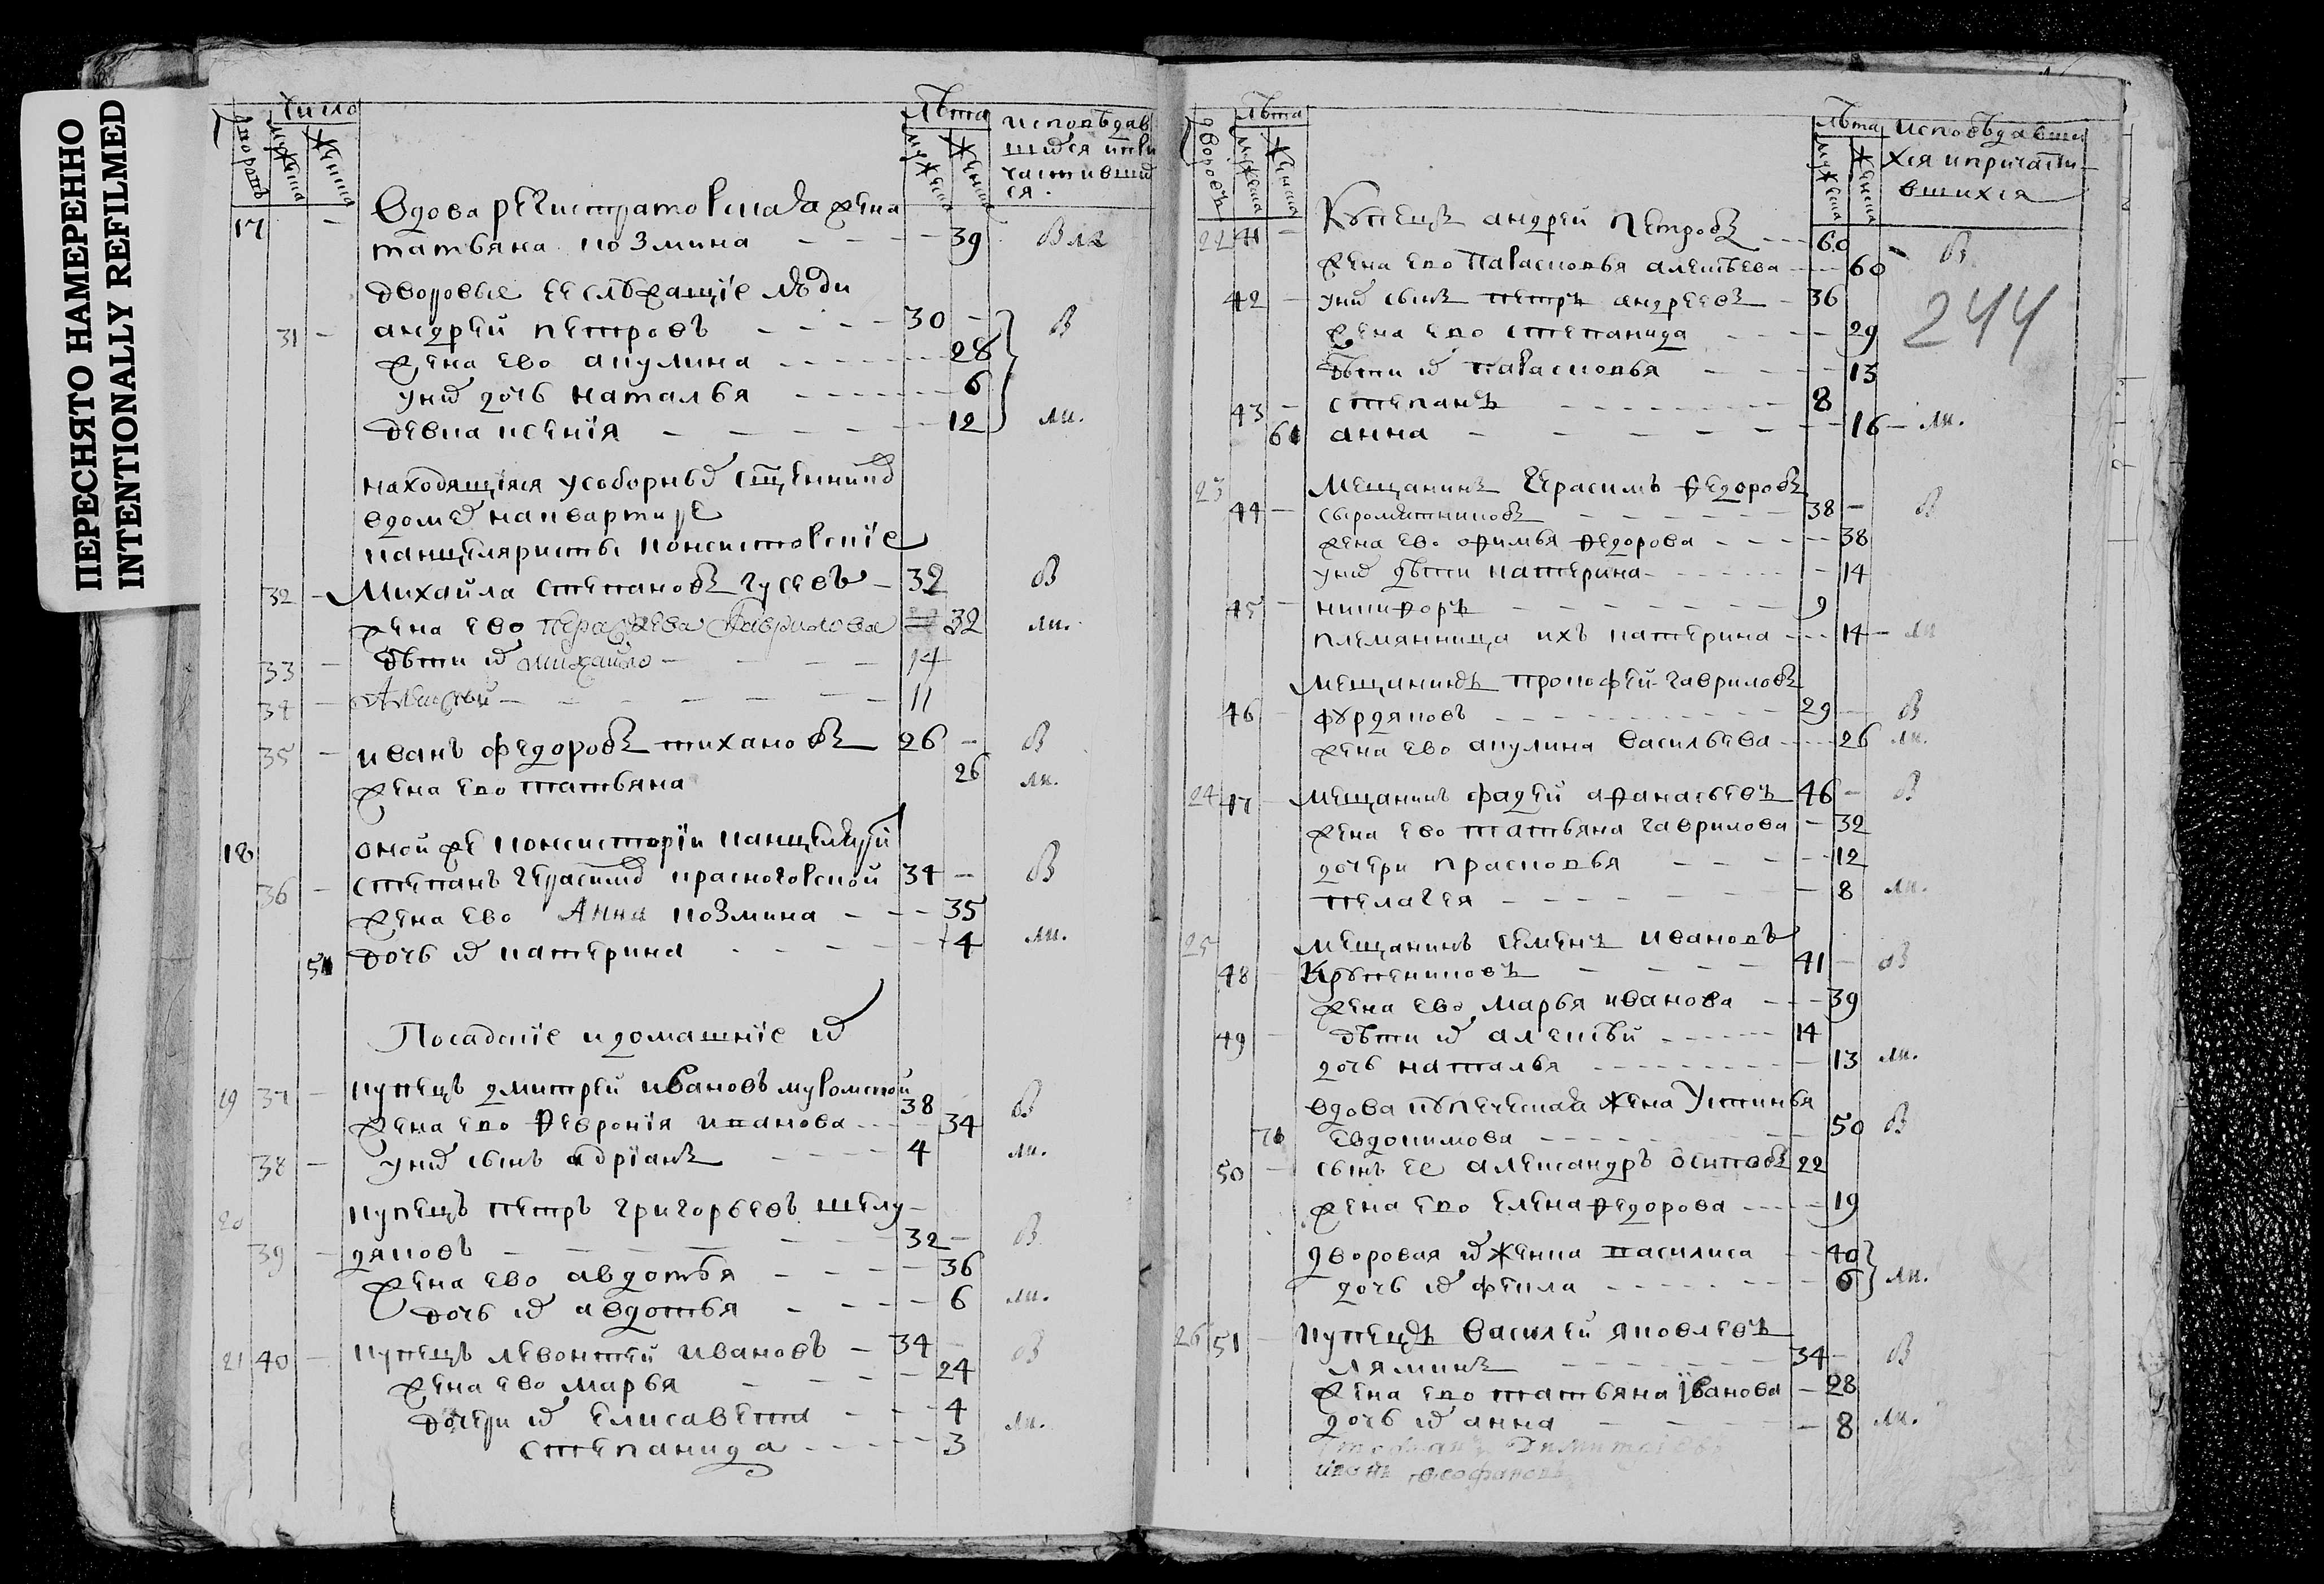 ПЕРЕСНЯТО НАМЕРЕННО
INTENTIONALLY REFILMED
число
лѣта
исповѣдав
шихся ипри
частивших
ся.
дворовъ
мужеска
женска
мужеска
женска
вдова регистраторская жена
17 — татьяна козмина — — — 39 В ли
дворовые ее служащіе люди
31 — андрей петровъ — — — 30 — В
жена ево акулина — — — 28
унихъ дочь наталья — — — 6
девка ксенїя — — — 12 ли.
находящїяся усоборныхъ сщенниковъ
вдомѣхъ наквартирѣ
канцеляристы консисторскїе
32 — Михайла степановъ гусевъ — 32 В
жена ево Гаврилова 32 ли.
33 — дѣти ихъ михайло — — — 14
34 — Алексѣй — — — 11
35 — иванъ федоровъ тихановъ 26 — В
жена ево татьяна 26 ли.
18 оной же консисторїи канцеляристъ
36 — степанъ герасимовъ красногорской 34 — В
жена ево Анна козмина — — — 35
51 дочь ихъ катерина — — — 4 ли.
Посадскїе идомашнїе ихъ
19 37 — купецъ дмитрей ивановъ муромской 38 В
жена ево февронїя иванова — — 34
38 — унихъ сынъ адрїанъ — — — 4 ли.
20 купецъ петръ григорьевъ шелу-
39 — дяковъ — — — 32 — В
жена ево авдотья — — — 36
дочь ихъ авдотья — — — 6 ли.
21 40 — купецъ левонтей ивановъ — 34 — В
жена ево марья — — — 24
дочери ихъ елисавета — — — 4
степанида — — — 3 ли.
лѣта
лѣта
исповѣдавши
хся ипричасти-
вшихся
дворовъ
мужеска
женска
мужеска
женска
22 41 — Купецъ андрей Петровъ — — 60 — В
жена ево Парасковья алексѣева — — 60
42 — унихъ сынъ петръ андреевъ — 36
244
жена ево степанида — — — 29
дѣти ихъ парасковья — — — 13
43 — степанъ — — — 8
61 анна — — — 16 — ли.
23 Мещанинъ Герасимъ федоровъ
44 — сыромятниковъ — — — 38 — В
жена ево офимья федорова — — — 38
унихъ дѣти катерина — — — 14
45 — никифоръ — — — 9
племянница ихъ катерина — — — 14 — ли
мещанинъ прокофей гавриловъ
46 — фурдяковъ — — — 29 — В
жена ево акулина васильева — — 26 ли.
24 47 — мещанинъ фадей афанасьевъ 46 — В
жена ево татьяна гаврилова — 32
дочери прасковья — — — 12
пелагея — — — 8 ли.
25 мещанинъ семенъ ивановъ
48 — Крупениковъ — — — 41 — В
жена ево марья иванова — — — 39
49 — дѣти ихъ алексѣй — — — 14
дочь наталья — — — 13 ли.
вдова купеческая жена Устинья
71 евдокимова — — — 50 В
50 — сынъ ее александръ осиповъ 22
жена ево елена федорова — — — 19
дворовая ихъ женка василиса — — 40
дочь ихъ фекла — — — 6 ли.
26 51 — купецъ василей яковлевъ
ляминъ — — — 34 — В
жена ево татьяна їванова — 28
дочь ихъ анна — — — 8 ли.